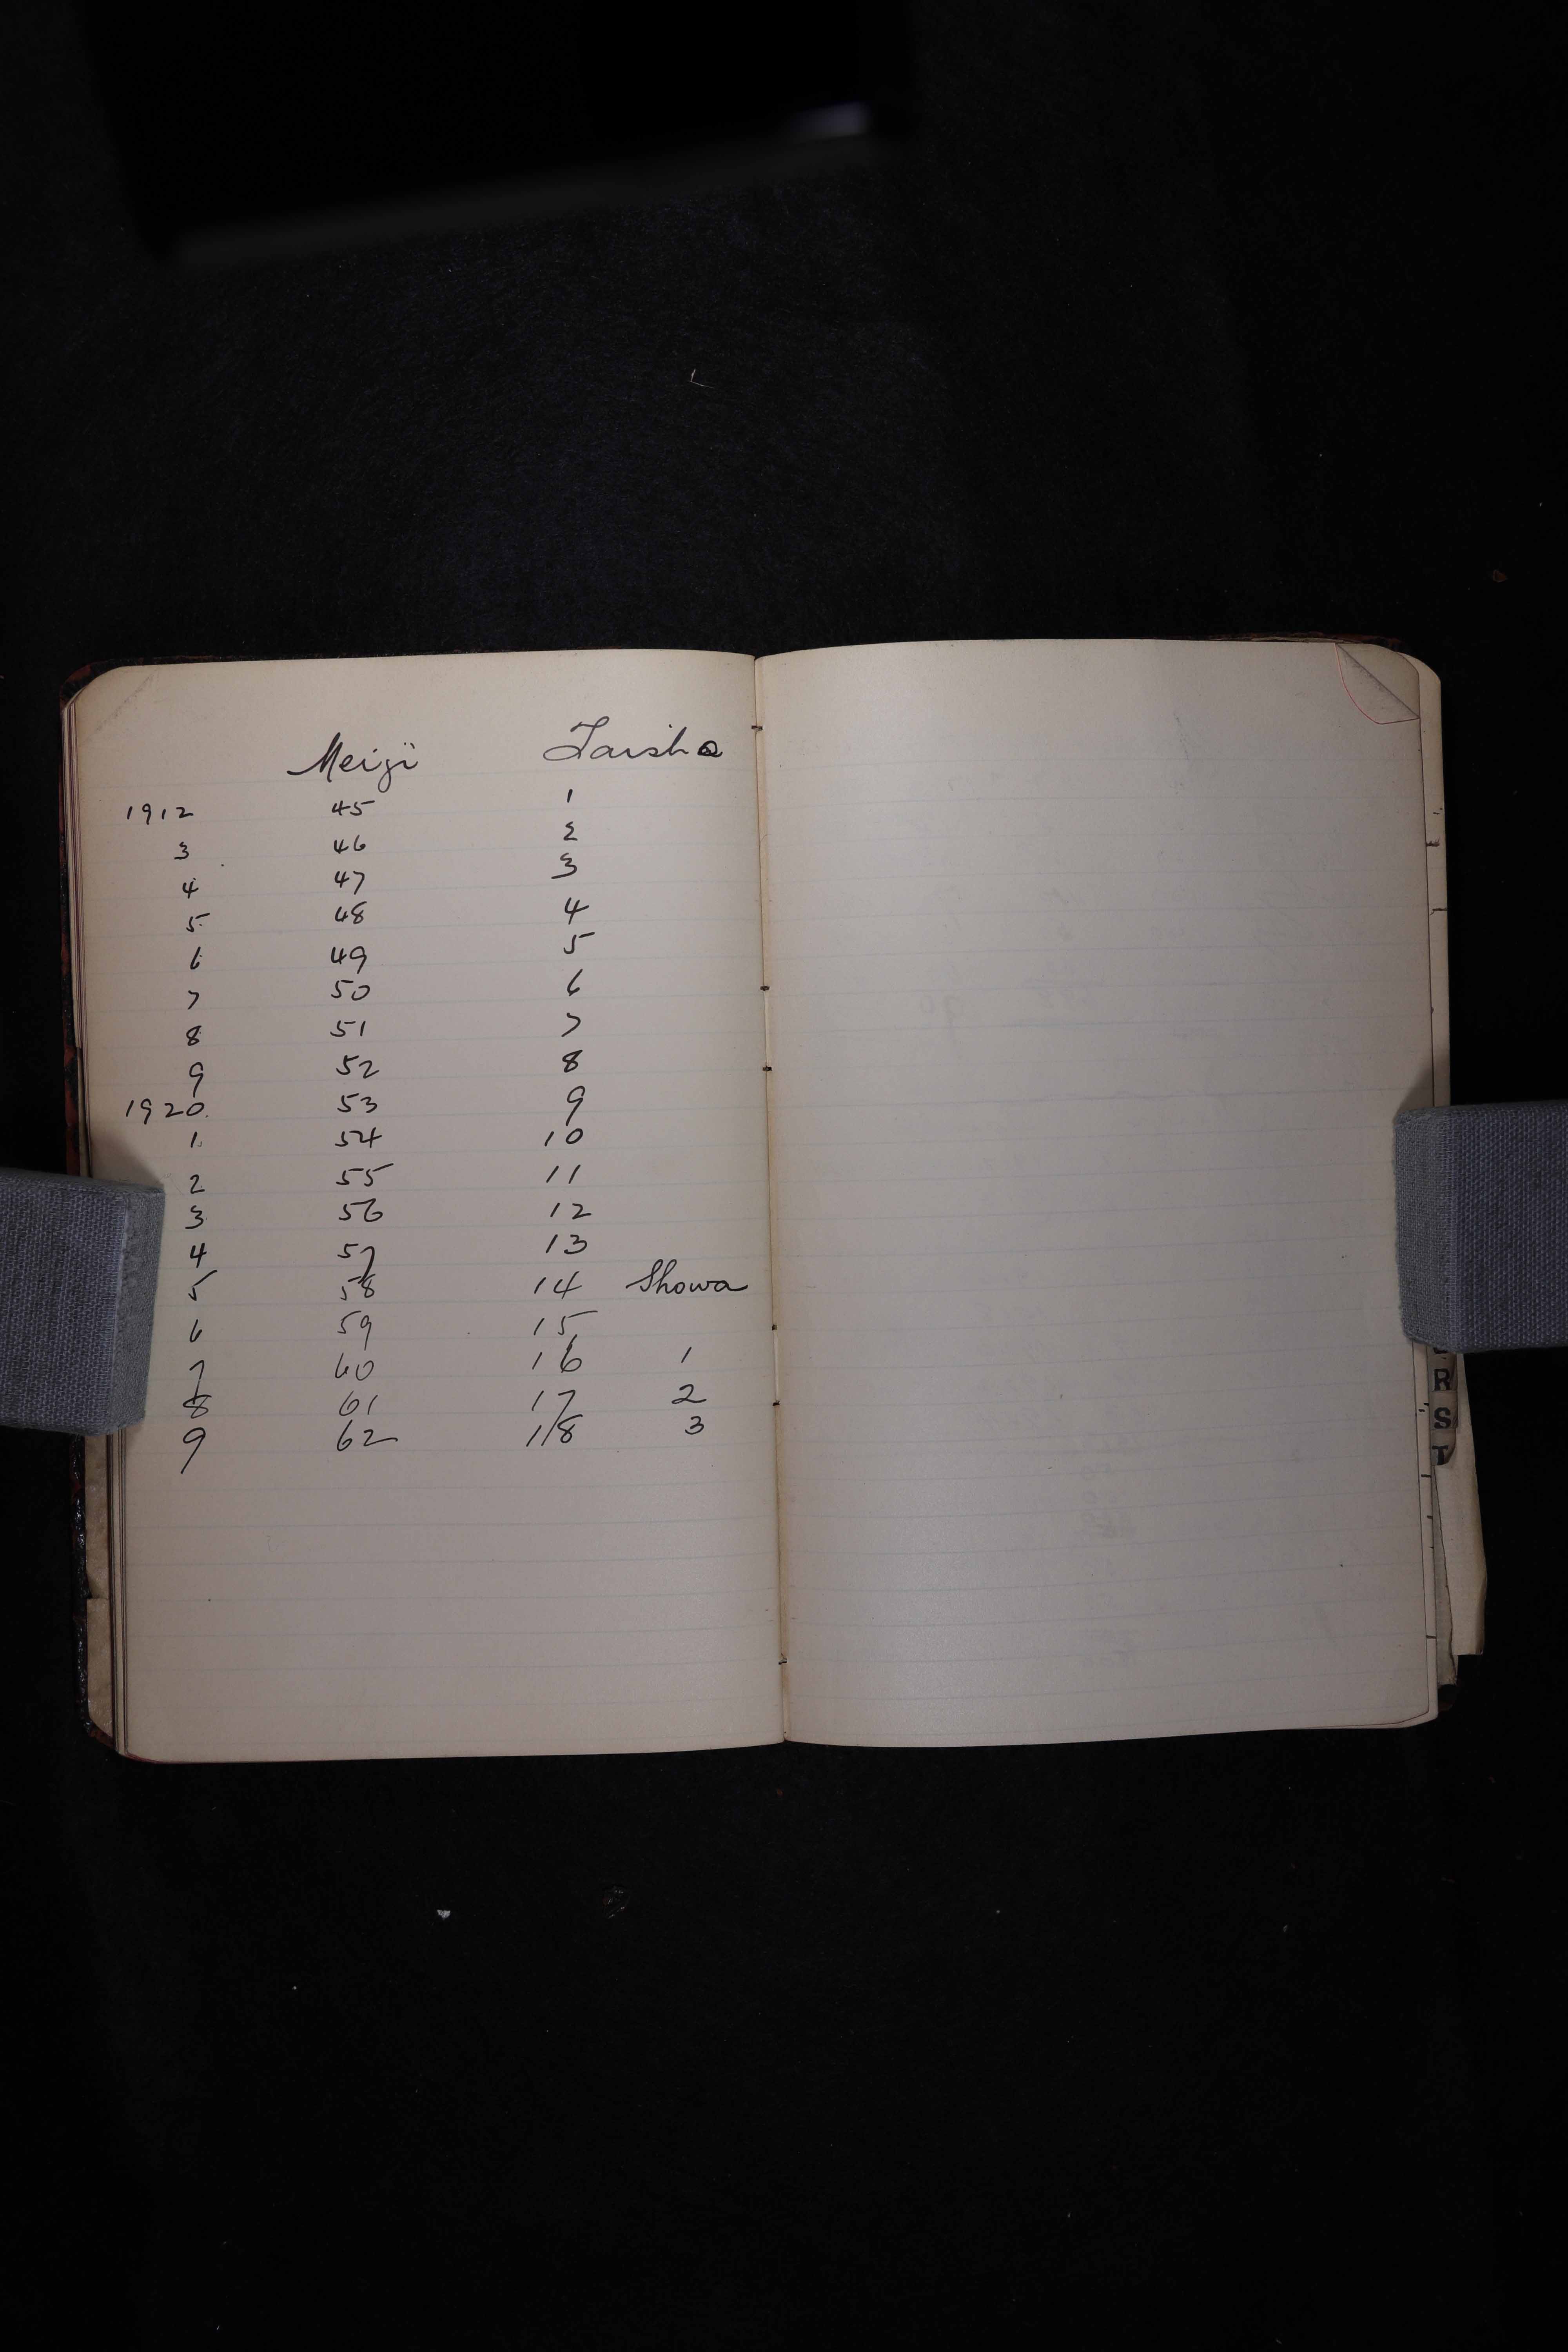 Meiji Taisho
1912 45 1
3 46 2
4 47 3
5 48 4
6 49 5
7 50 6
8 51 7
9 52 8
1920 53 9
1 54 10
2 55 11
3 56 12
4 57 13
5 58 14 Showa
6 59 15
7 60 16 1
8 61 17 2
9 62 18 3
R
S
T